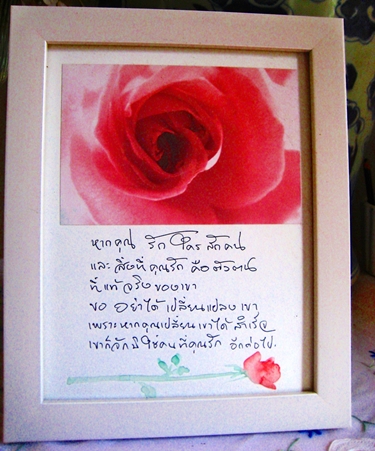 หากคุณ รัก ใคร สักคน
และ สิ่งที่ คุณรัก คือ ตัวตน
ที่ แท้ จริง ของเขา
ขอ อย่าได้ เปลี่ยนแปลง เขา
เพราะหากคุณเปลี่ยนเขาได้ สำเร็จ
เขาก็จักมิใช่คนที่คุณรัก อีกต่อไป.